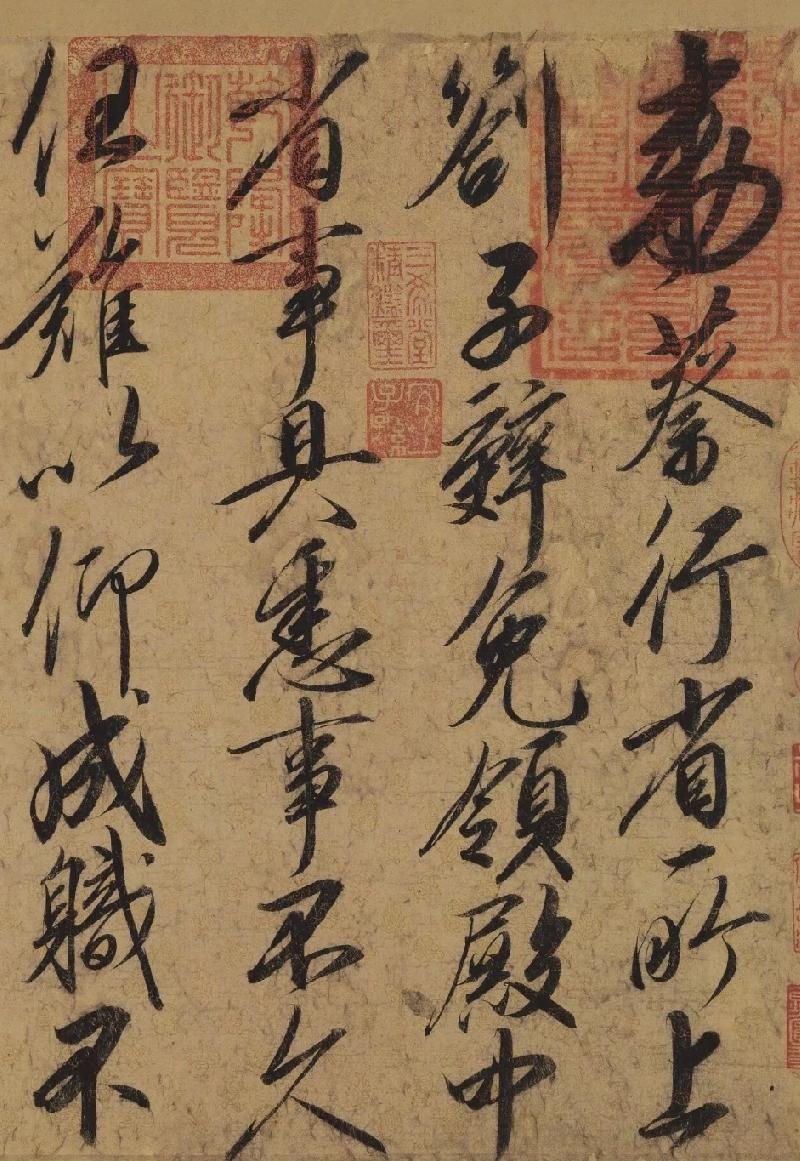 勅蔡行省所上
劄子辭免領殿中
省事具悉事不久
任難以仰成職不
乾隆御覽之寶
三希堂精鑑璽
宜子孫